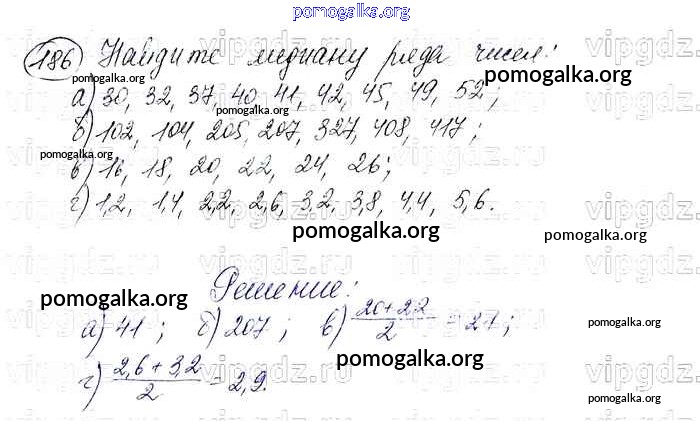 pomogalka.org
186 Найдите медиану ряда чисел:
pomogalka.org pomogalka.org
а) 30, 32, 37, 40, 41, 42, 45, 49, 52;
pomogalka.org
б) 102, 104, 205, 207, 327, 408, 417;
pomogalka.org
в) 16, 18, 20, 22, 24, 26;
г) 1,2, 1,4, 2,2, 2,6, 3,2, 3,8, 4,4, 5,6.
pomogalka.org pomogalka.org
Решение:
pomogalka.org
а) 41; б) 207; в) 20+22/2 = 21;
pomogalka.org
pomogalka.org
г) 2,6+3,2/2 = 2,9.
pomogalka.org
vipgdz.ru